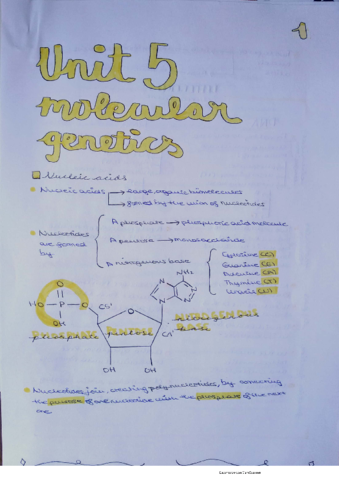 1
Unit 5
molecular
genetics
Nucleic acids
Nucleic acids → large organic biomolecules
→ formed by the union of nucleotides
A phosphate → phosphoric acid molecule
Nucleotides
are formed
by
A pentose → monosaccharide
A nitrogenous base
Cytosine (C)
Guanine (G)
Adenine (A)
Thymine (T)
Uracil (U)
NH₂
O
HO P O
OH
C5'
N N
N N
O
NITROGENOUS
BASE
PHOSPHATE
PENTOSE
phosphate
pentose
C1'
OH OH
Nucleotides join, creating polynucleotides, by connecting
the pentose of one nucleotide with the phosphate of the next
one